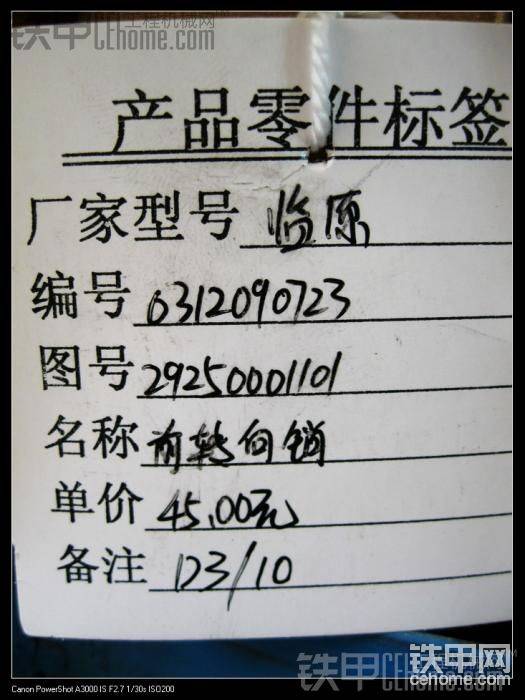 铁甲 工程机械网
Cehome.com
产品零件标签
厂家型号 临原
编号 0312090723
图号 29250001101
名称 前转向销
单价 45.00元
备注 D3/10
铁甲网
cehome.com
Canon PowerShot A3000 IS F2.7 1/30s ISO200